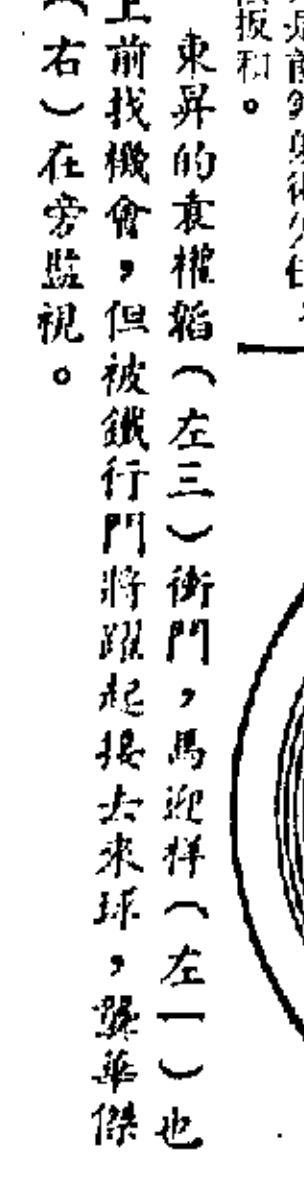 板和。
東昇的袁權韜（左三）衝門，馬迎祥（左一）也
上前找機會，但被鐵行門將躍起接去來球，龔華傑
（右）在旁監視。